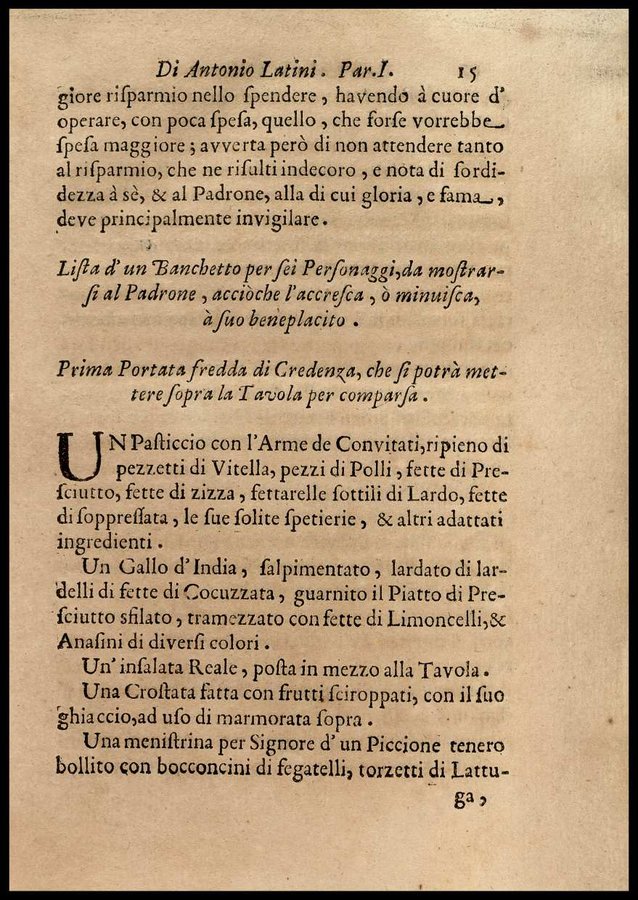 Di Antonio Latini. Par.I. 15
giore riſparmio nello ſpendere, havendo à cuore d'
operare, con poca ſpeſa, quello, che forſe vorrebbe
ſpeſa maggiore; avverta però di non attendere tanto
al riſparmio, che ne riſulti indecoro, e nota di ſordi-
dezza à sè, & al Padrone, alla di cui gloria, e fama,
deve principalmente invigilare.
Liſta d'un Banchetto per ſei Perſonaggi, da moſtrar-
ſi al Padrone, acciòche l'accreſca, ò minuiſca,
à ſuo beneplacito.
Prima Portata fredda di Credenza, che ſi potrà met-
tere ſopra la Tavola per comparſa.
UN Paſticcio con l'Arme de Convitati, ripieno di
pezzetti di Vitella, pezzi di Polli, fette di Pre-
ſciutto, fette di zizza, fettarelle ſottili di Lardo, fette
di ſoppreſſata, le ſue ſolite ſpetierie, & altri adattati
ingredienti.
Un Gallo d'India, ſalpimentato, lardato di lar-
delli di fette di Cocuzzata, guarnito il Piatto di Pre-
ſciutto sfilato, tramezzato con fette di Limoncelli, &
Anaſini di diverſi colori.
Un' inſalata Reale, poſta in mezzo alla Tavola.
Una Croſtata fatta con frutti ſciroppati, con il ſuo
ghiaccio, ad uſo di marmorata ſopra.
Una meniſtrina per Signore d'un Piccione tenero
bollito con bocconcini di fegatelli, torzetti di Lattu-
ga,